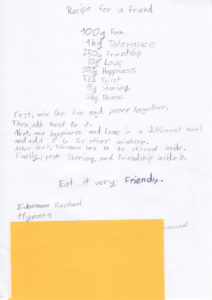 Recipe for a friend
100g Fun
1kg Tolerance
250g Friendship
Love
Happiness
Trust
Sharing
2kg Peace
First, mix the fun and peace together.
Then, add trust to it.
Next, mix happiness and love in a different bowl
and add it to the other mixture.
After that, tolerance has to be stirred inside.
Finally, pour sharing and friendship inside it.
Eat it very Friendly.
Raphael
11 years